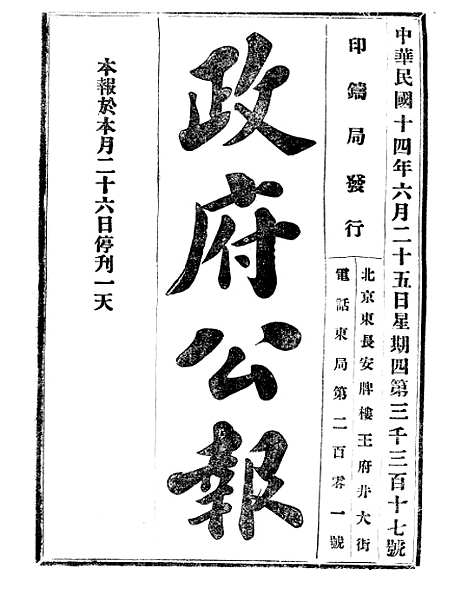 中華民國十四年六月二十五日星期四第三千三百十七號
印鑄局發行
北京東長安牌樓王府井大街
電話東局第二百零一號
政府公報
本報於本月二十六日停刊一天